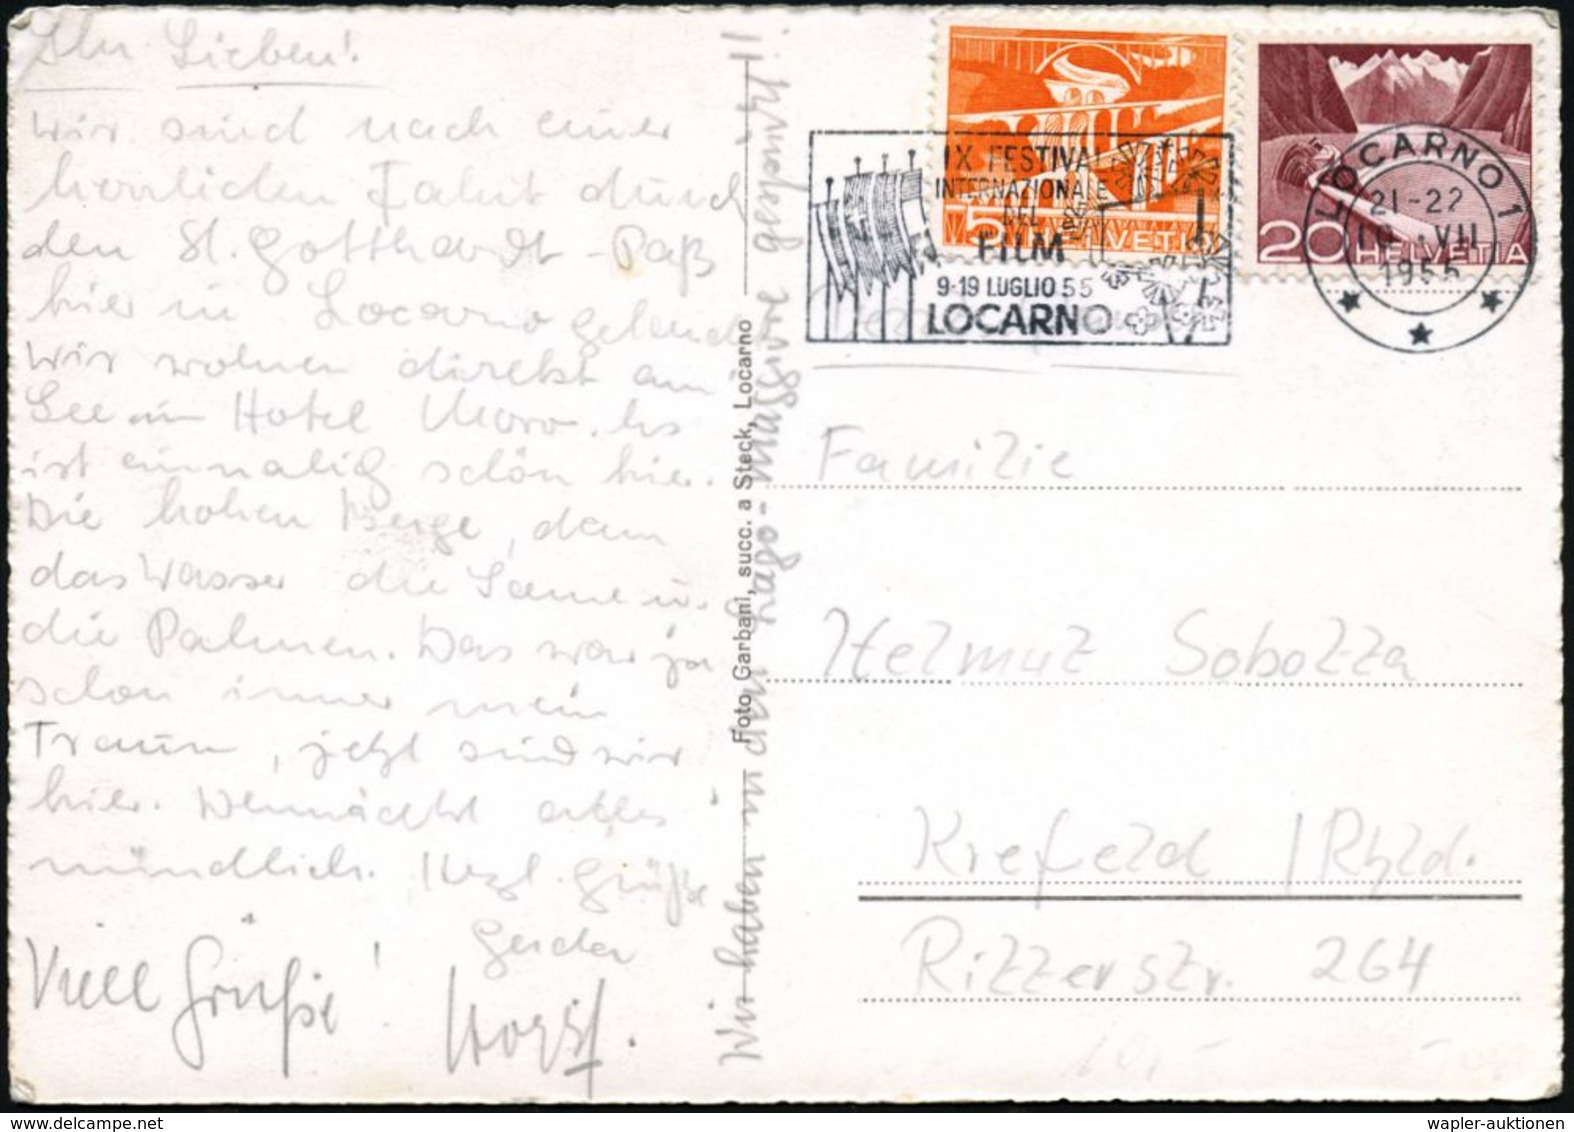 Ihr Lieben!
Wir sind nach einer
herrlichen Fahrt durch
den St. Gotthardt-Paß
hier in Locarno gelandet
Wir wohnen direkt am
See im Hotel Moro. Es
ist einmalig schön hier.
Die hohen Berge, dann
das Wasser die Sonne u.
die Palmen. Das war ja
schon immer mein
Traum, jetzt sind wir
hier. Demnächst alles
mündlich. Herzl. Grüße
Viele Grüße!
Horst.
Wir haben um den Lago-Maggiore
Foto Garbani, succ. a Steck, Locarno
IX FESTIVAL
INTERNAZIONALE
DEL
FILM
9-19 LUGLIO 55
LOCARNO
5 HELVETIA
20 HELVETIA
LOCARNO 1
21-22
VII
1955
Familie
Helmut Sobotta
Krefeld / Rhld.
Ritterstr. 264
wapler-auktionen